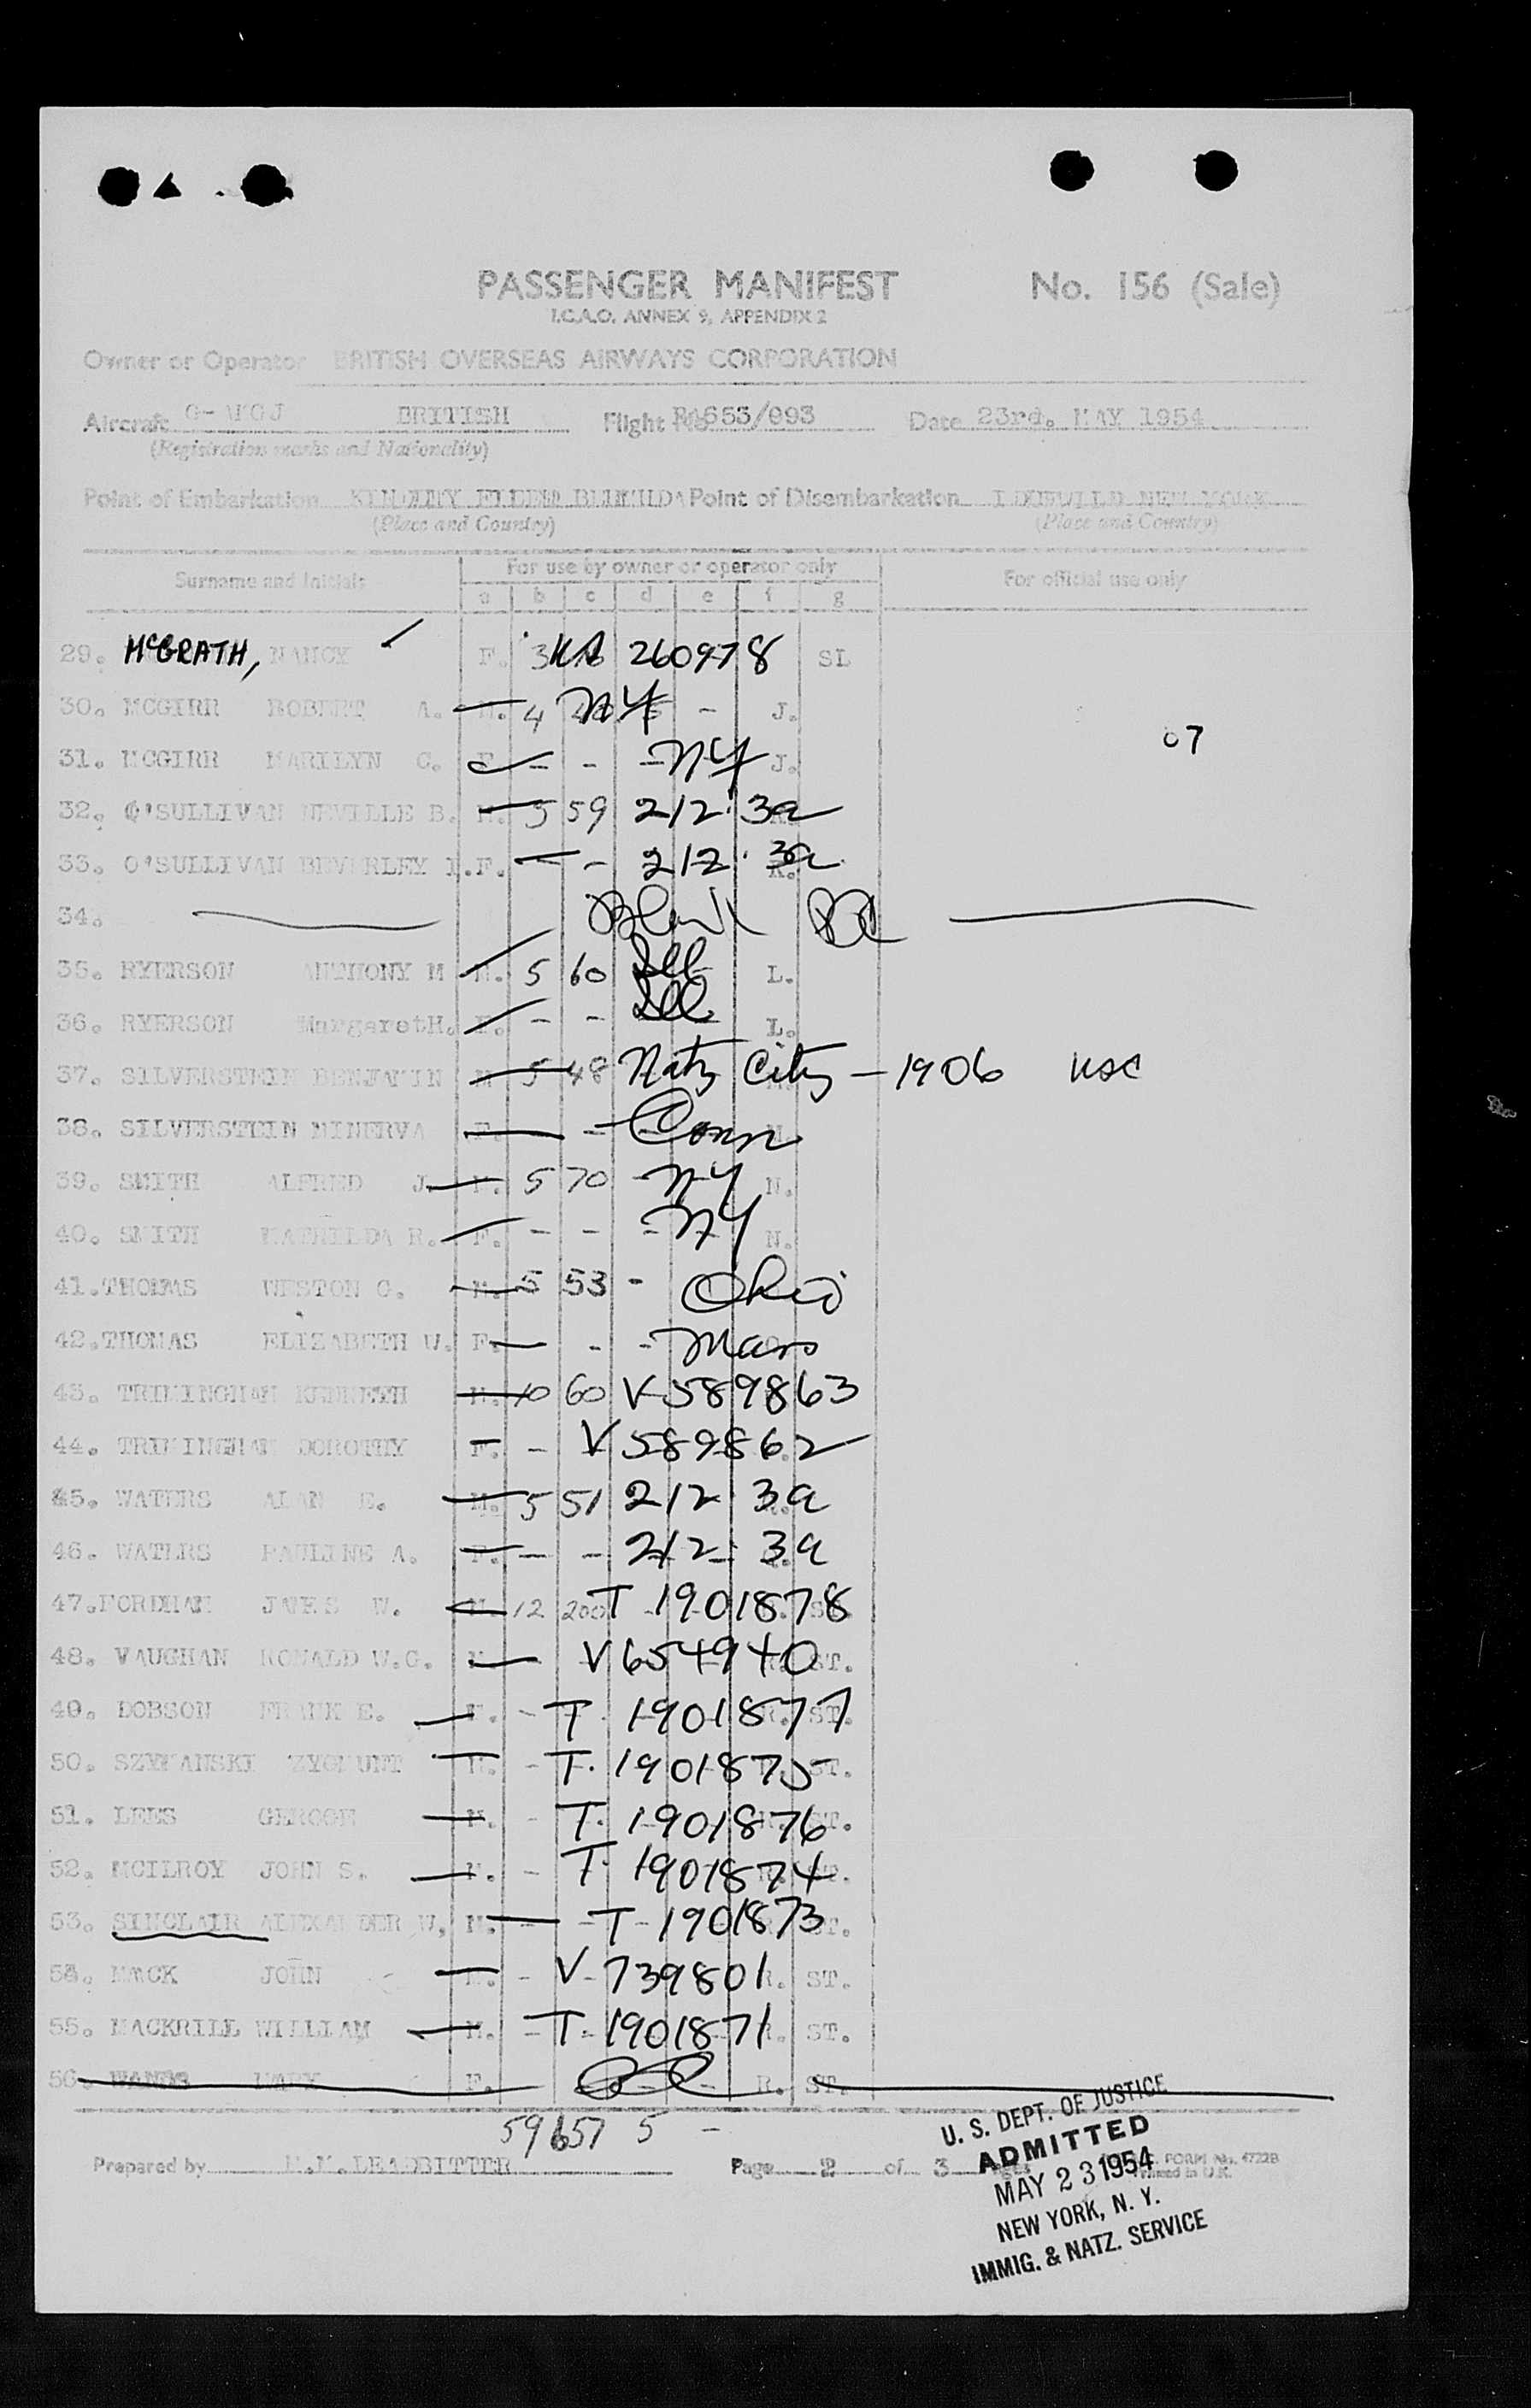 PASSENGER MANIFEST No. 156 (Sale)
I.C.A.O. ANNEX 9, APPENDIX 2
Owner or Operator BRITISH OVERSEAS AIRWAYS CORPORATION
Aircraft BRITISH Flight 653/093 Date 23rd. MAY 1954
(Registration marks and Nationality)
Point of Embarkation Point of Disembarkation IDLEWILD NEW YORK
(Place and Country) (Place and Country)
Surname and Initials For use by owner or operator only For official use only
a b c d e f g
29. McGRATH, NANCY F. 3 260978 SL
30. MCGIRR ROBERT A. M. 4 NY - J.
31. MCGIRR MARILYN C. F - - - NY J.
07
32. O'SULLIVAN NEVILLE B. M. 5 59 212. 3a
33. O'SULLIVAN BEVERLEY F. - 212. 3a
34. Blank
35. RYERSON ANTHONY M M. 5 60 L.
36. RYERSON Margaret H. F. - - L.
37. SILVERSTEIN BENJAMIN M 5 48 Natz City - 1906 USC
38. SILVERSTEIN MINERVA F. - Conn
39. SMITH ALFRED J. M. 5 70 - NY N.
40. SMITH MATHILDA R. F. - - - NY N.
41. THOMAS WESTON G. M. 5 53 - Ohio
42. THOMAS ELIZABETH W. F. - - Mass
43. TRIMINGHAM KENNETH M. 10 60 V-589863
44. TRIMINGHAM DOROTHY F. - V 589862
45. WATERS ALAN E. M. 5 51 212. 3a
46. WATERS PAULINE A. F. - - 212. 3a
47. FORDHAM JAMES W. M. 12 200 T 1901878
48. VAUGHAN RONALD W.G. M V654940 ST.
49. DOBSON FRANK E. M. - T. 1901877 ST.
50. SZYMANSKI ZYGMUNT M. - T. 1901875 ST.
51. LEES GEROGE M. - T. 1901876 ST.
52. MCILROY JOHN S. M. - T. 1901874
53. SINCLAIR ALEXANDER W. M. - - T-1901873 ST.
54. MACK JOHN M. - V-739801 R. ST.
55. MACKRILL WILLIAM M. - T. 1901871 R. ST.
56. MARY F. R. ST.
59 657 5 -
Prepared by LEADBITTER Page 2 of 3
FORM No. 4722B
Printed in U.K.
U. S. DEPT. OF JUSTICE
ADMITTED
MAY 23 1954
NEW YORK, N. Y.
IMMIG. & NATZ. SERVICE